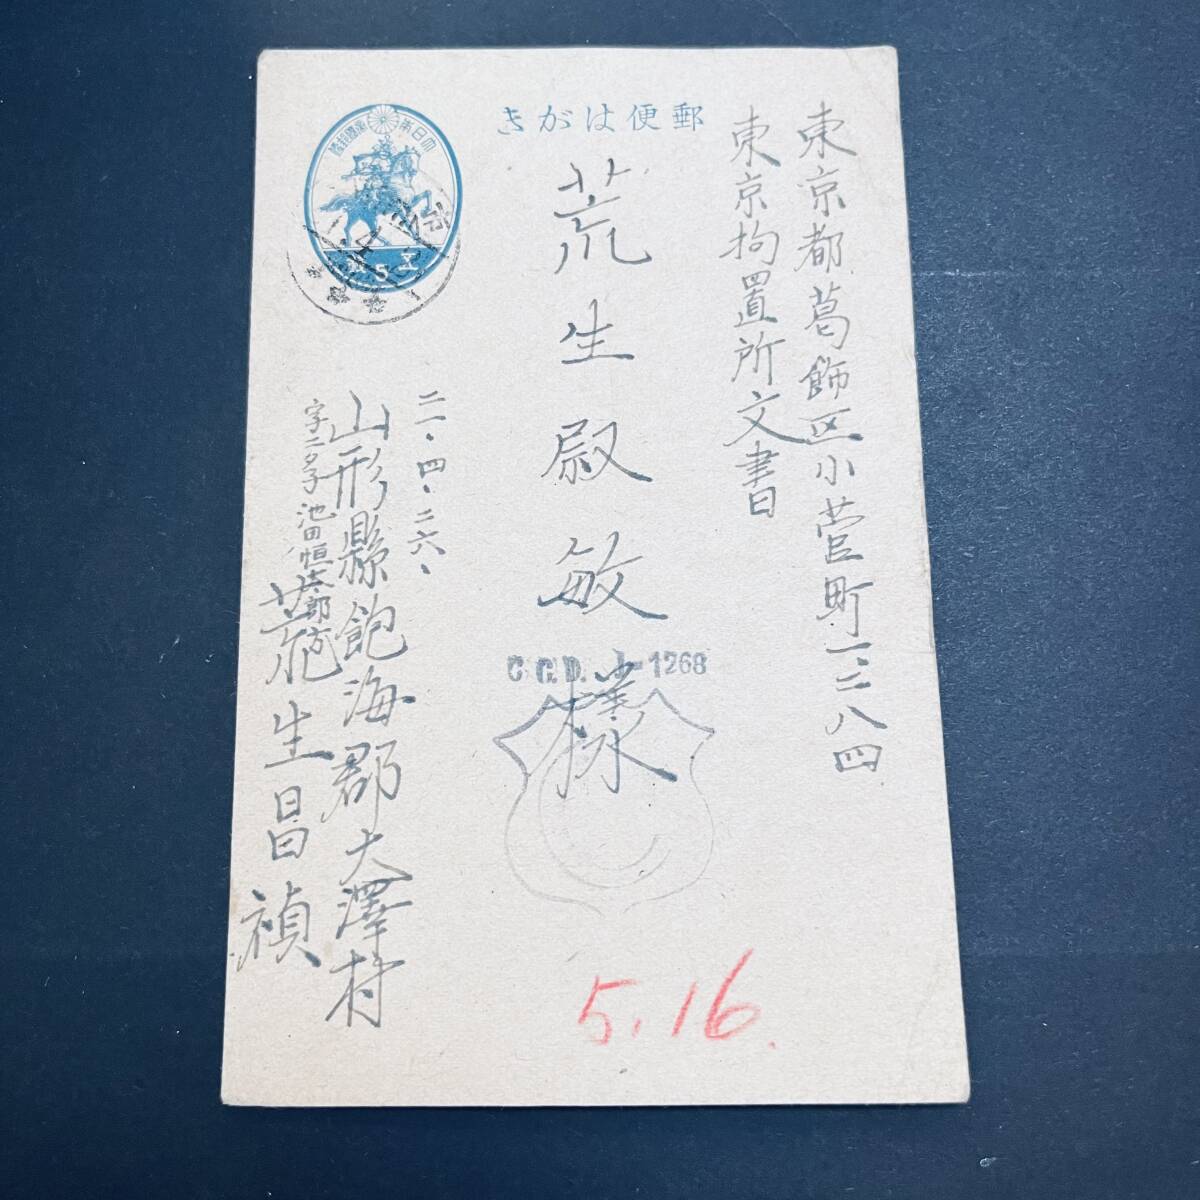 郵便はがき
大日本帝國郵便
5
東京都葛飾区小菅町一、二八四
東京拘置所文書
荒生尉敏様
C.C.D. J-1268
二一・四・二六、
山形縣飽海郡大澤村
池田恒太郎方
荒生昌禎
5.16.